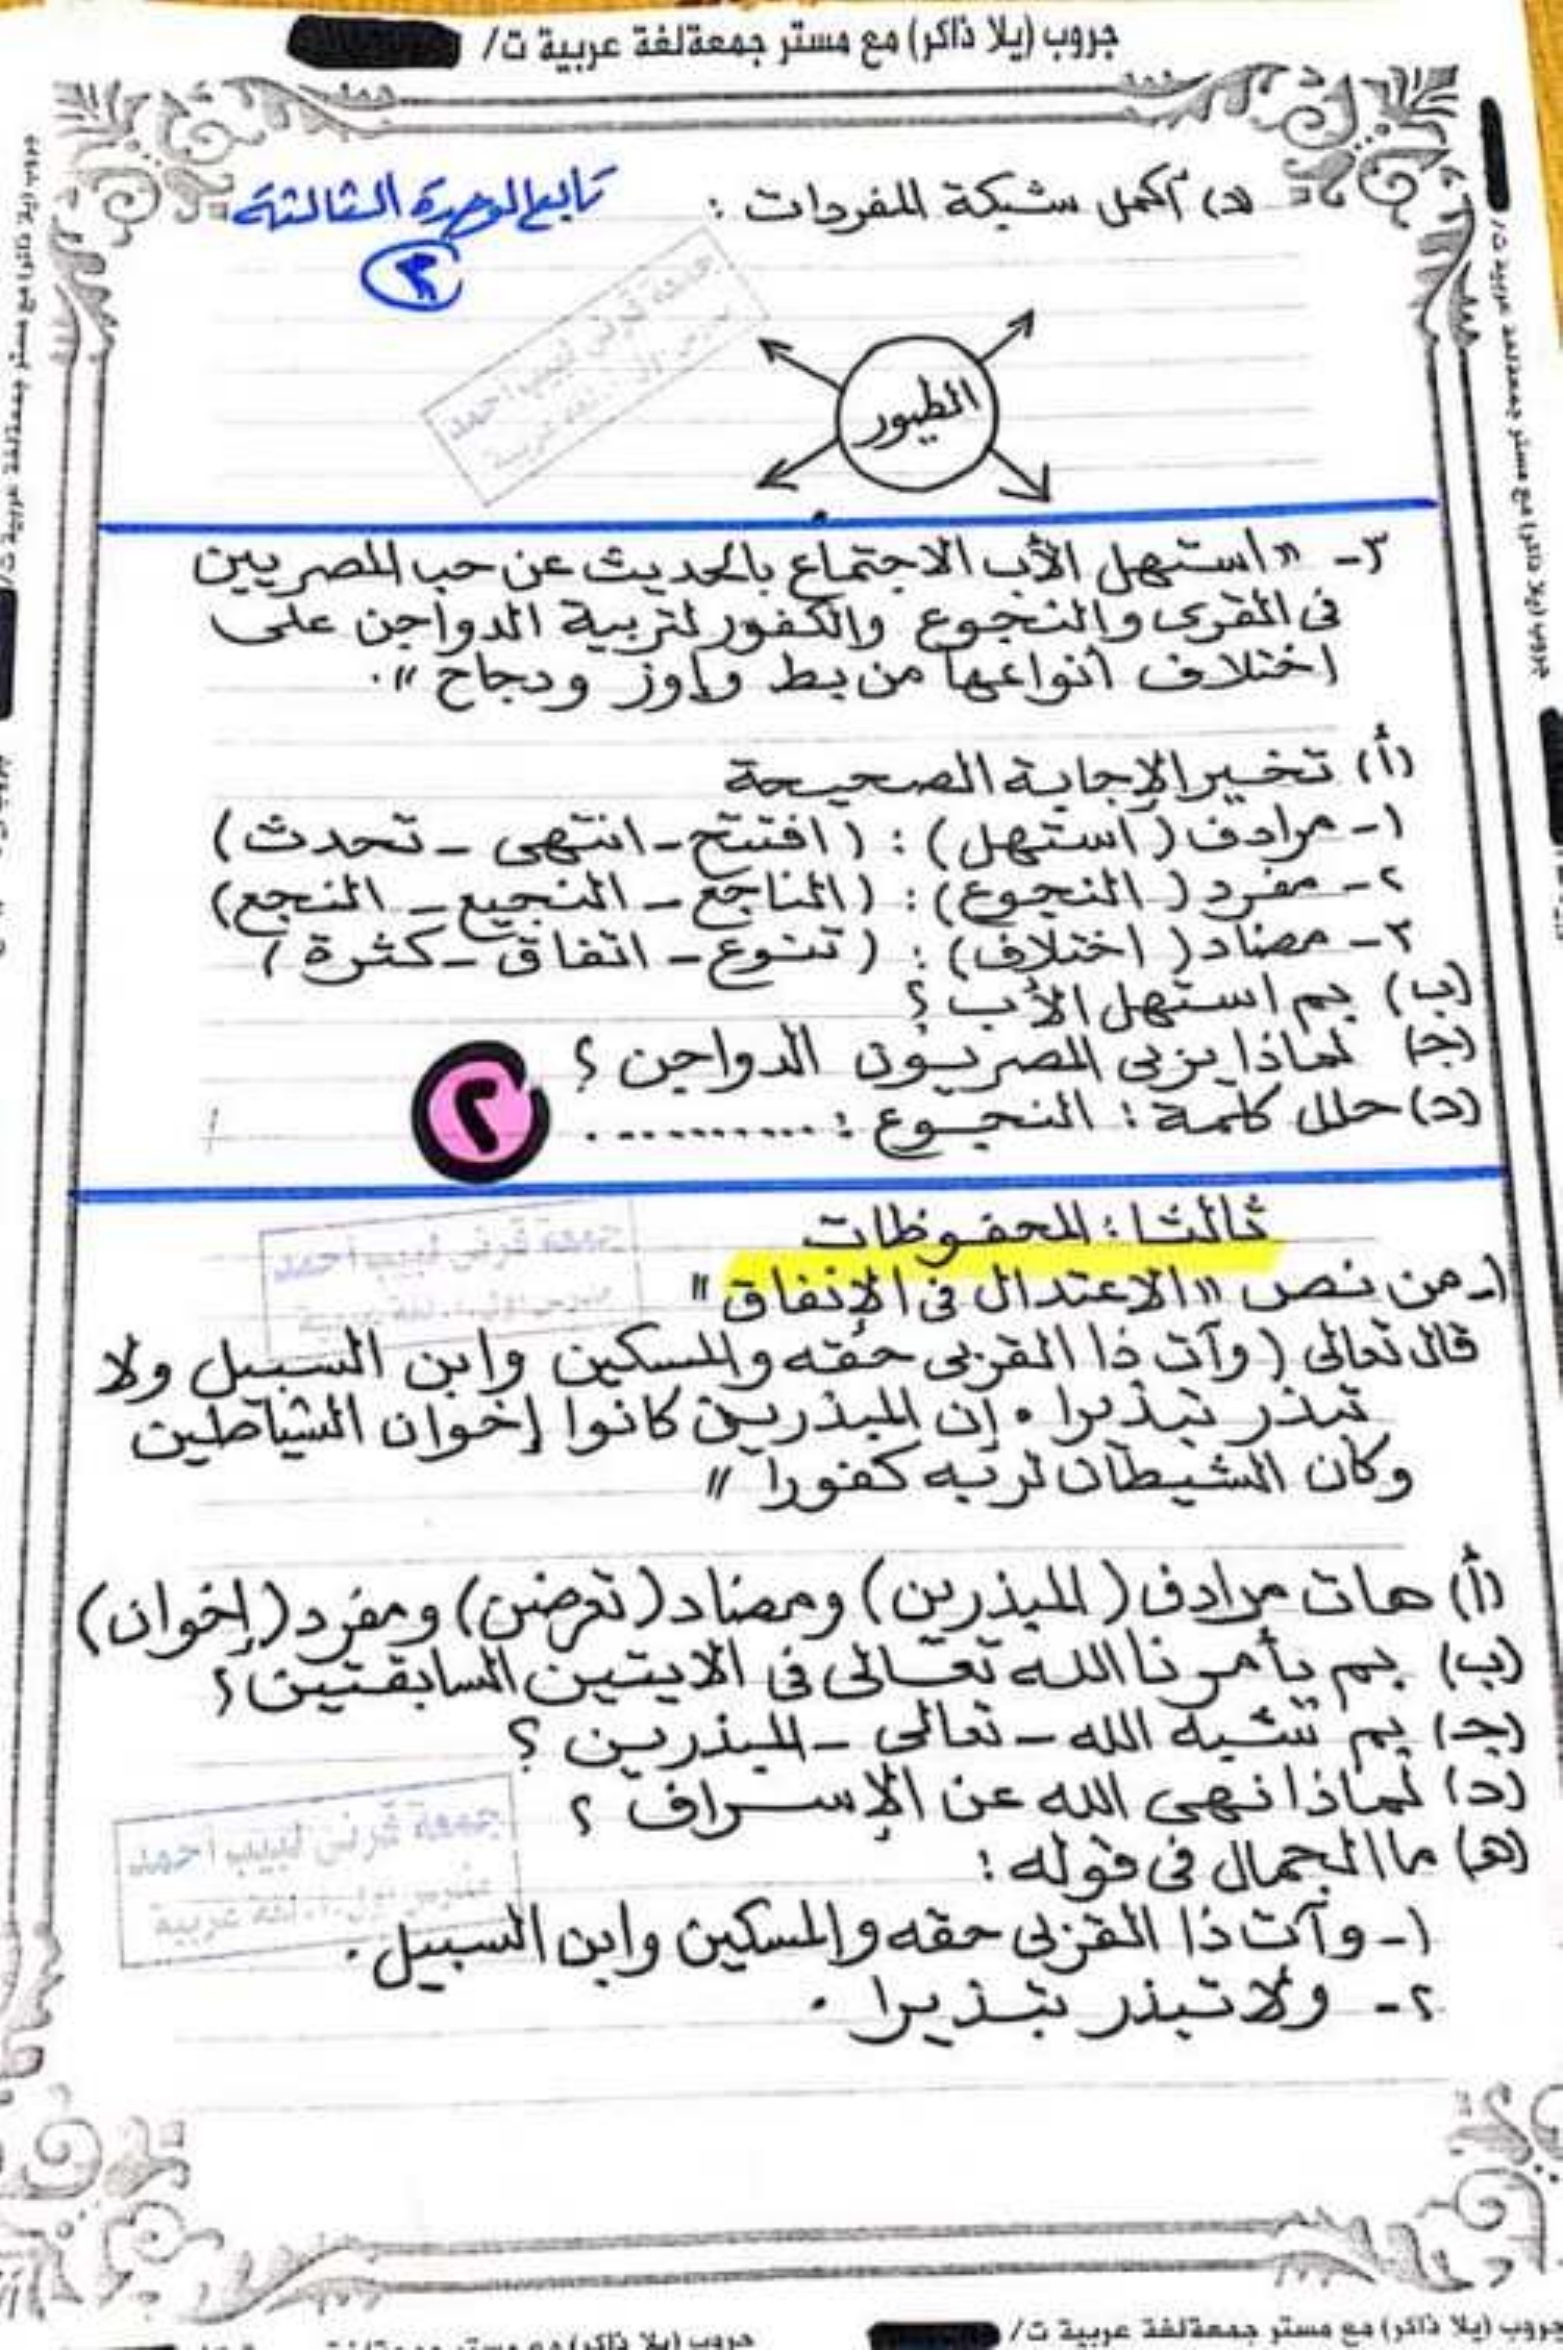 جروب (يلا ذاكر) مع مستر جمعة لغة عربية ت/
(د) أكمل شبكة المفردات :
تابع الوحدة الثالثة
٣
الطيور
جمعة قرنى لبيب أحمد
٣- «استهل الأب الاجتماع بالحديث عن حب المصريين
فى القرى والنجوع والكفور لتربية الدواجن على
اختلاف أنواعها من بط وإوز ودجاج».
(أ) تخير الإجابة الصحيحة
١- مرادف (استهل) : (افتتح - انتهى - تحدث)
٢- مفرد (النجوع) : (الناجع - النجيع - النجع)
٣- مضاد (اختلاف) : (تنوع - اتفاق - كثرة)
(ب) بم استهل الأب ؟
(ج) لماذا يربى المصريون الدواجن ؟
(د) حلل كلمة : النجوع : ...........
٢
ثالثا : المحفوظات
١- من نص «الاعتدال فى الإنفاق»
قال تعالى (وآت ذا القربى حقه والمسكين وابن السبيل ولا
تبذر تبذيرا . إن المبذرين كانوا إخوان الشياطين
وكان الشيطان لربه كفورا»
(أ) هات مرادف (المبذرين) ومضاد (تعرضن) ومفرد (إخوان)
(ب) بم يأمرنا الله تعالى فى الايتين السابقتين ؟
(ج) بم شبه الله - تعالى - المبذرين ؟
(د) لماذا نهى الله عن الإسراف ؟
(هـ) ما الجمال فى قوله :
١- وآت ذا القربى حقه والمسكين وابن السبيل .
٢- ولا تبذر تبذيرا .
جمعة قرنى لبيب أحمد
جمعة قرنى لبيب أحمد
جروب (يلا ذاكر) مع مستر جمعة لغة عربية ت/